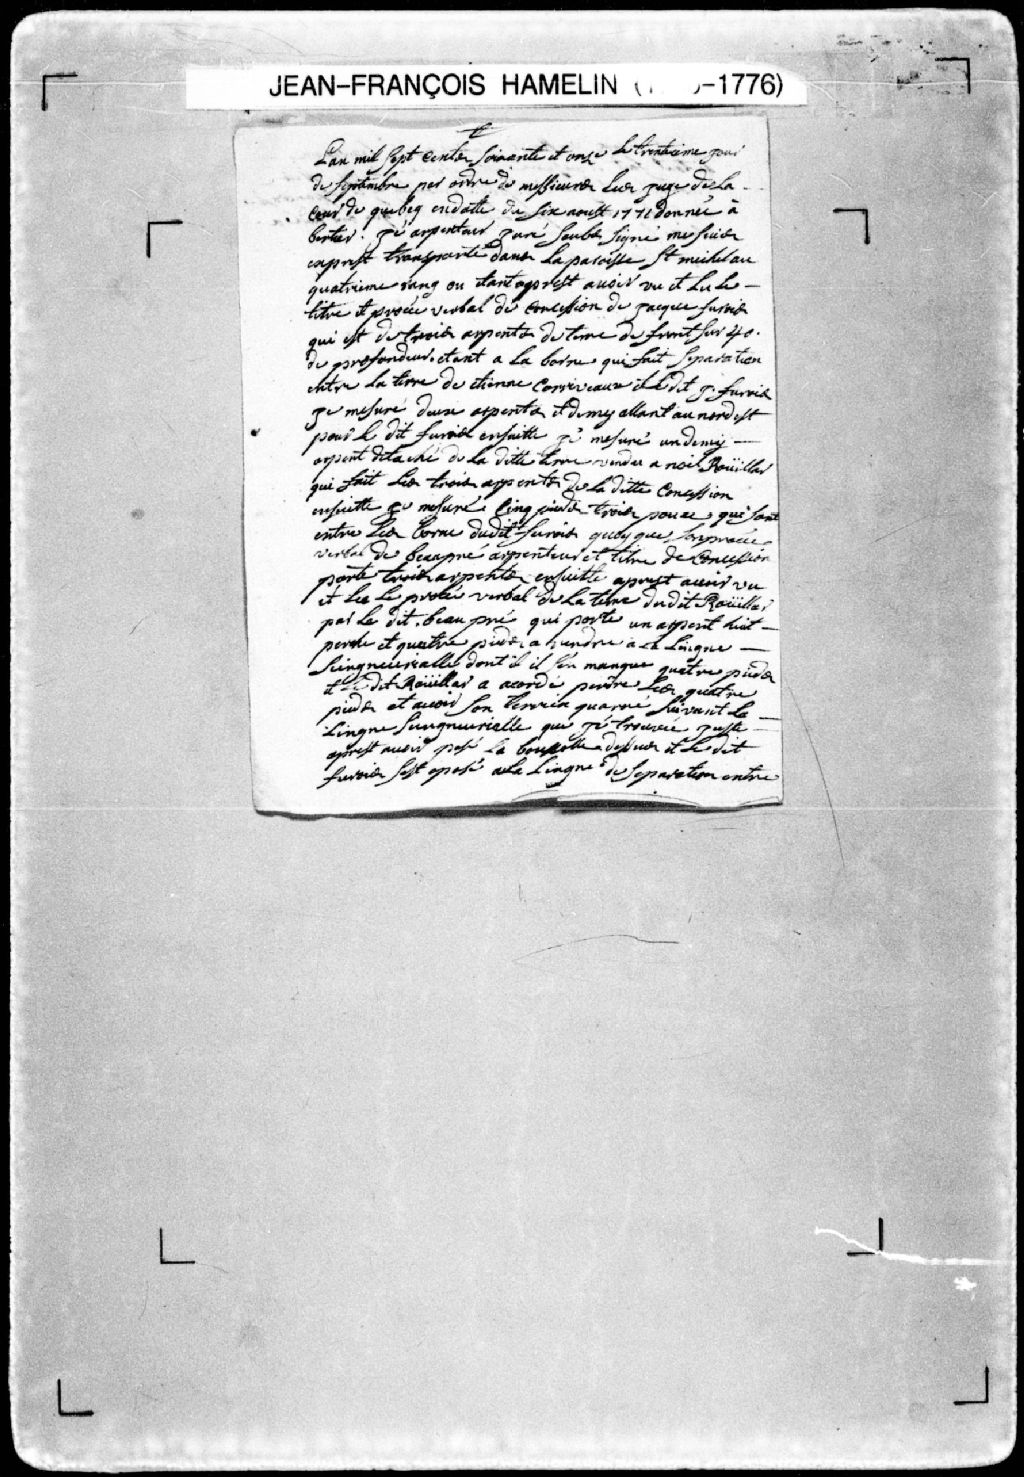 JEAN-FRANÇOIS HAMELIN ( -1776)
L'an mil sept cents soixante et onze le trentieme jour
de septembre par ordre de messieurs les juge de la
cour de quebeq en datte du six aoust 1771 donneé à
bertier. jé arpenteur juré soubs signé me suis
exprest transporté dans la paroisse St michel au
quatrieme rang ou etant aprest avoir vu et lu le
titre et proces verbal de concession de jacque furois
qui est de trois arpents de terre de front sur 40.
de profondeur. etent a la borne qui fait separation
entre la terre de etienne Correveaux et le dit j furois
je mesuré deux arpents et demy allant au nord est
pour le dit furois ensuitte jé mesuré un demy
arpent detaché de la ditte terre vendu a noil Roüillar
qui fait les trois arpents de la ditte Concession
ensuitte je mesuré Cinq pieds trois pouce qui sont
entre les borne dudit furois quoy que son proces
verbal de beaupré arpenteur et titre de Concession
porte trois arpents ensuitte aprest avoir vu
et lu le proces verbal de la terre dudit Roüillar
par le dit beaupré qui porte un arpent huit
perche et quatre pieds a prendre a la Lingne
Seingneurialle dont il il s'en manque quatre pieds
et le dit Roüillar a acordé perdre les quatre
pieds et avoir son terrein quarré suivant la
Lingne Seingneurialle que jé trouvée juste
aprest avoir posé la boussolle dessus et le dit
furois s'est oposé a la Lingne de separation entre